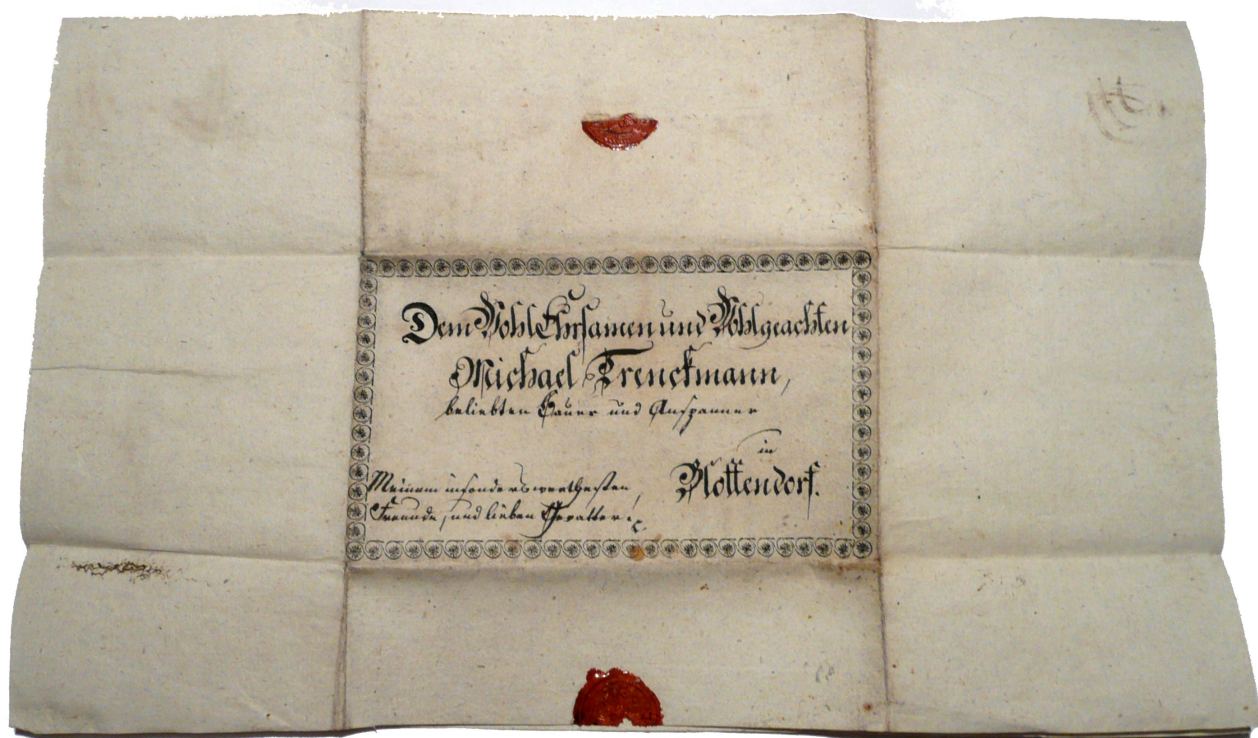 Dem WohlEhrsamen und Wohlgeachten
Michael Trenckmann,
beliebten Bauer und Anspanner
in
Plottendorf.
Meinem insonderswerthesten,
Freunde, und lieben Gevatter